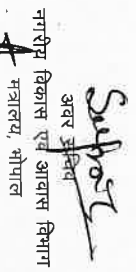 अवर सचिव
नगरीय विकास एवं आवास विभाग
मंत्रालय, भोपाल